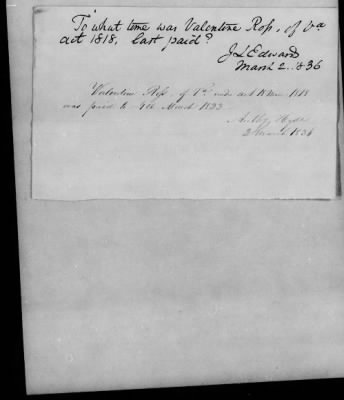 To what time was Valentine Ross, of Va
act 1818, last paid?
J L Edwards
March 2. 1836
Valentine Ross, of Va. under act 18 Mar 1818
was paid to 4th March 1833
Hyde
2 March 1836